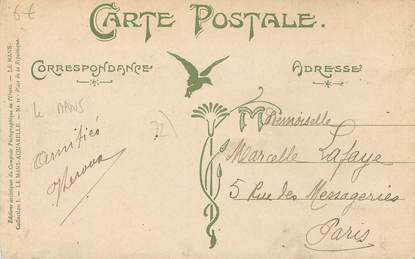 6€
CARTE POSTALE.
CORRESPONDANCE
ADRESSE
Le MANS
72
Amitiés
Mademoiselle
Marcelle Lafaye
5 Rue des Messageries
Paris
Editions artistiques du Comptoir Photographique de l'Ouest. — LE MANS.
Collection I. — LE MANS-AQUARELLE. — No 10 Place de la République.